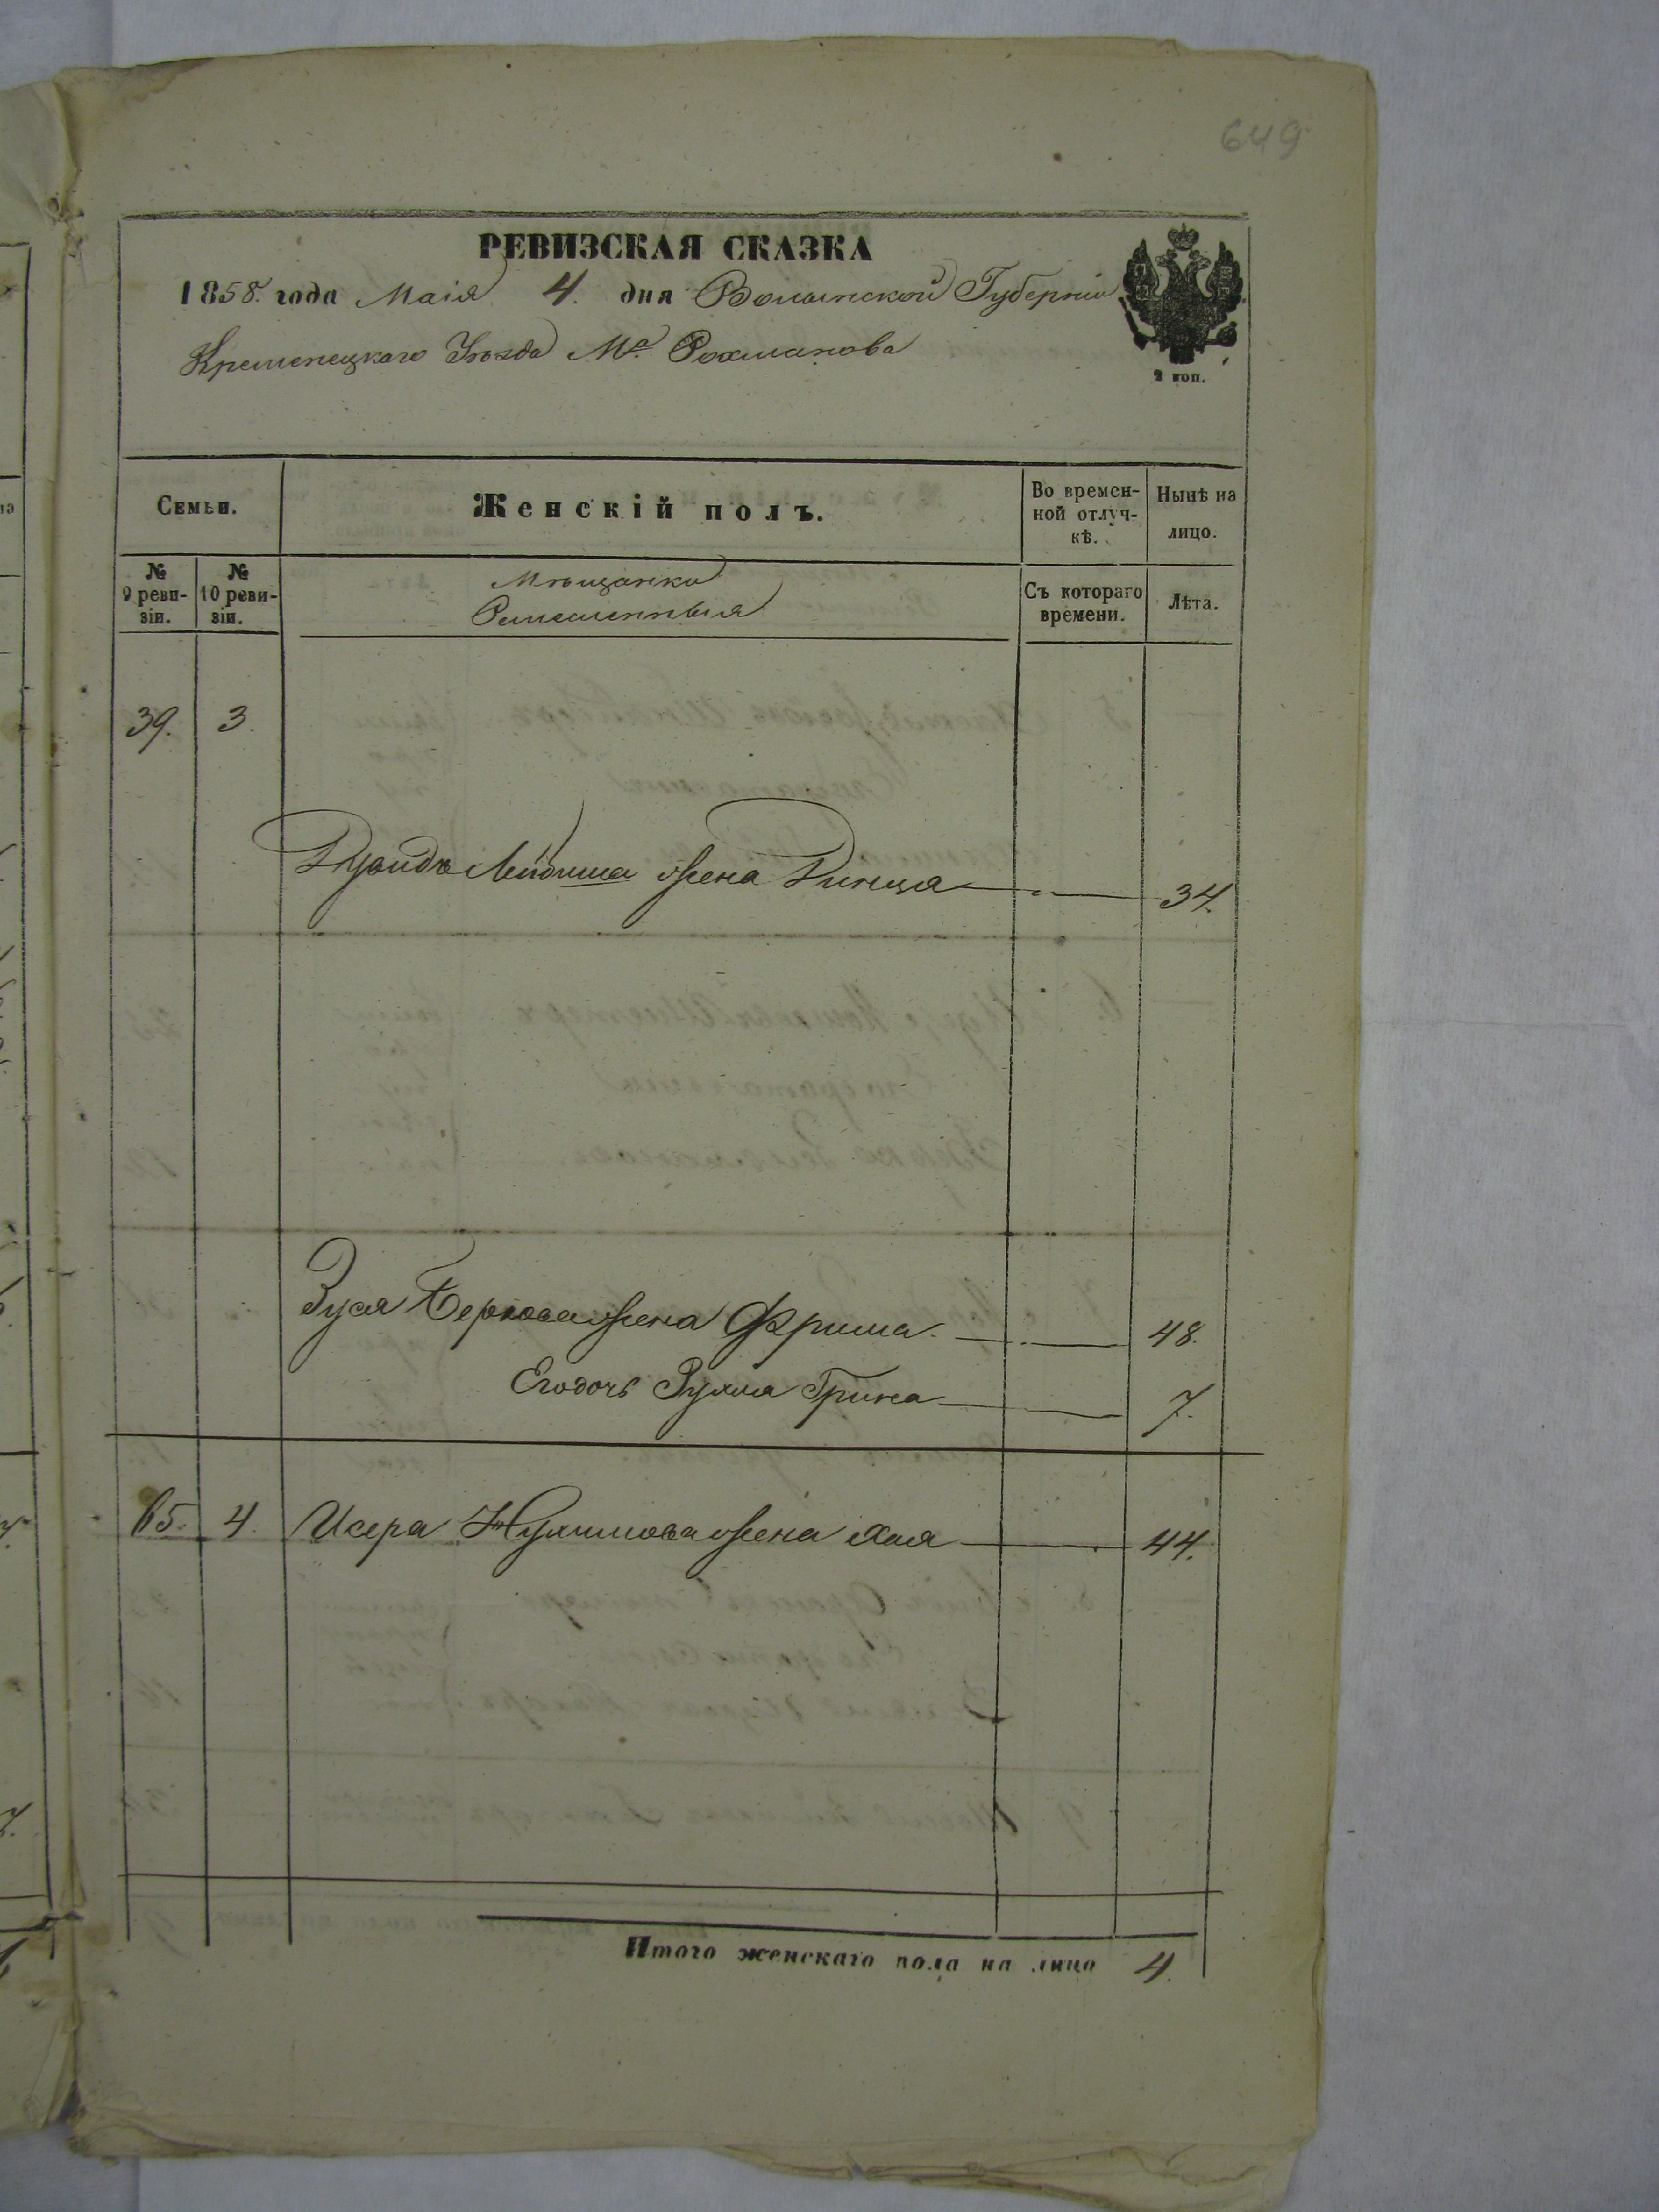 649
РЕВИЗСКАЯ СКАЗКА
1858. года Маія 4. дня Волынской Губерніи
Кременецкаго Уѣзда Мо. Рохманова
2 коп.
Семьи.
Женскій полъ.
Во времен-
ной отлуч-
кѣ.
Нынѣ на
лицо.
№
9 реви-
зіи.
№
10 реви-
зіи.
Мѣщанки
Ремесленныя
Съ котораго
времени.
Лѣта.
39. 3.
Лейбиша жена 34.
Зуся Беркова жена Фрима 48.
Его дочь Грина 7.
65. 4. Исера жена Хая 44.
Итого женскаго пола на лицо 4.